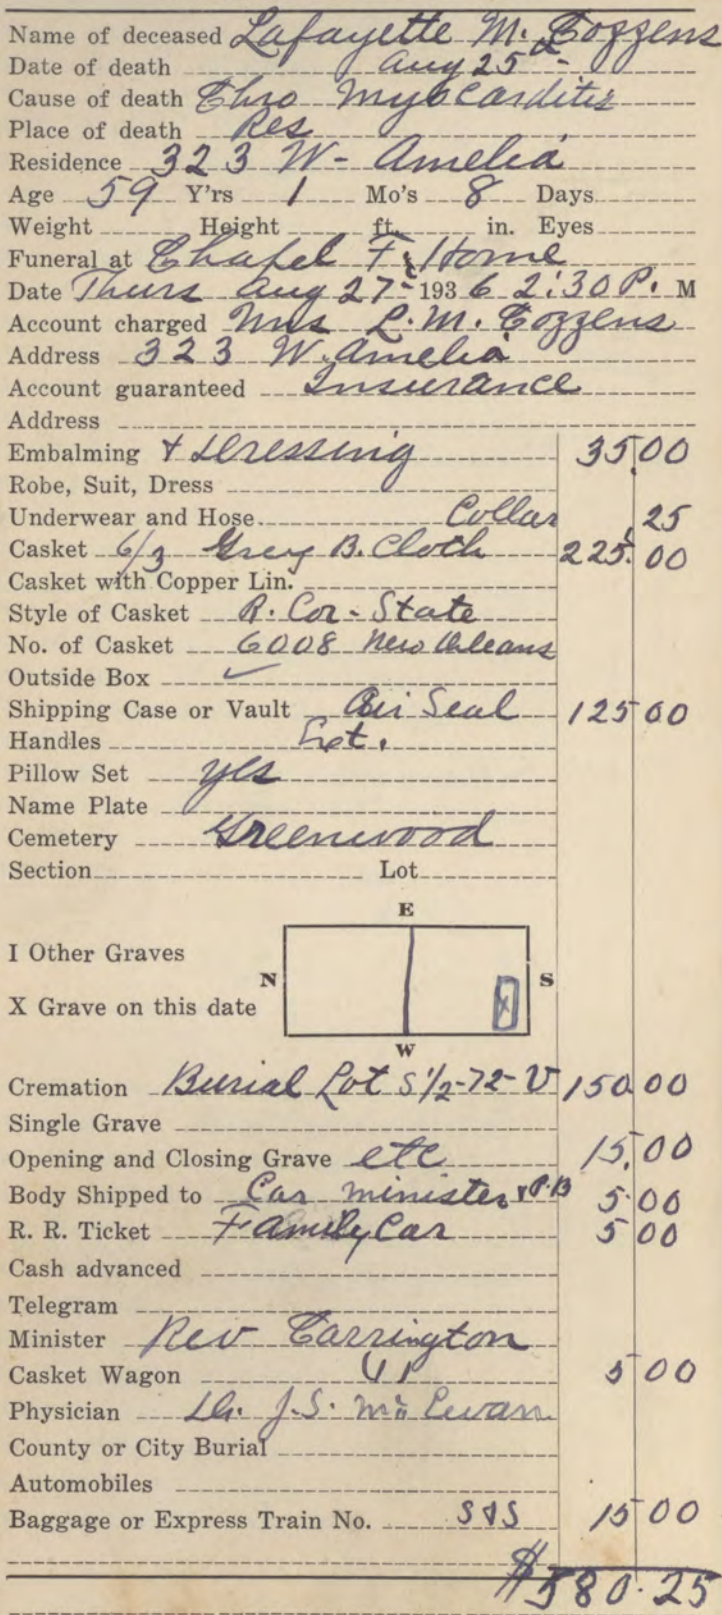 Name of deceased Lafayette M. Cozzens
Date of death Aug 25th
Cause of death Chro Myocarditis
Place of death Res
Residence 323 W- Amelia
Age 59 Y'rs 1 Mo's 8 Days
Weight Height ft. in. Eyes
Funeral at Chapel F. Home
Date Thurs Aug 27- 1936 2:30 P. M
Account charged Mrs L. M. Cozzens
Address 323 W. Amelia
Account guaranteed Insurance
Address
Embalming & Dressing 35.00
Robe, Suit, Dress
Underwear and Hose Collar .25
Casket 6/3 Grey B. Cloth 225.00
Casket with Copper Lin.
Style of Casket R. Cor- State
No. of Casket 6008 New Orleans
Outside Box ✓
Shipping Case or Vault Air Seal 125 00
Handles
Pillow Set yes
Name Plate
Cemetery Greenwood
Section Lot
E
I Other Graves
N S
X Grave on this date X
W
Cremation Burial Lot S 1/2-72-V 150 00
Single Grave
Opening and Closing Grave etc 15.00
Body Shipped to Car minister & P.B 5.00
R. R. Ticket Family Car 5 00
Cash advanced
Telegram
Minister Rev Carrington
Casket Wagon 5 00
Physician Dr. J. S. McEwan
County or City Burial
Automobiles
Baggage or Express Train No. S & S 15 00
$580.25